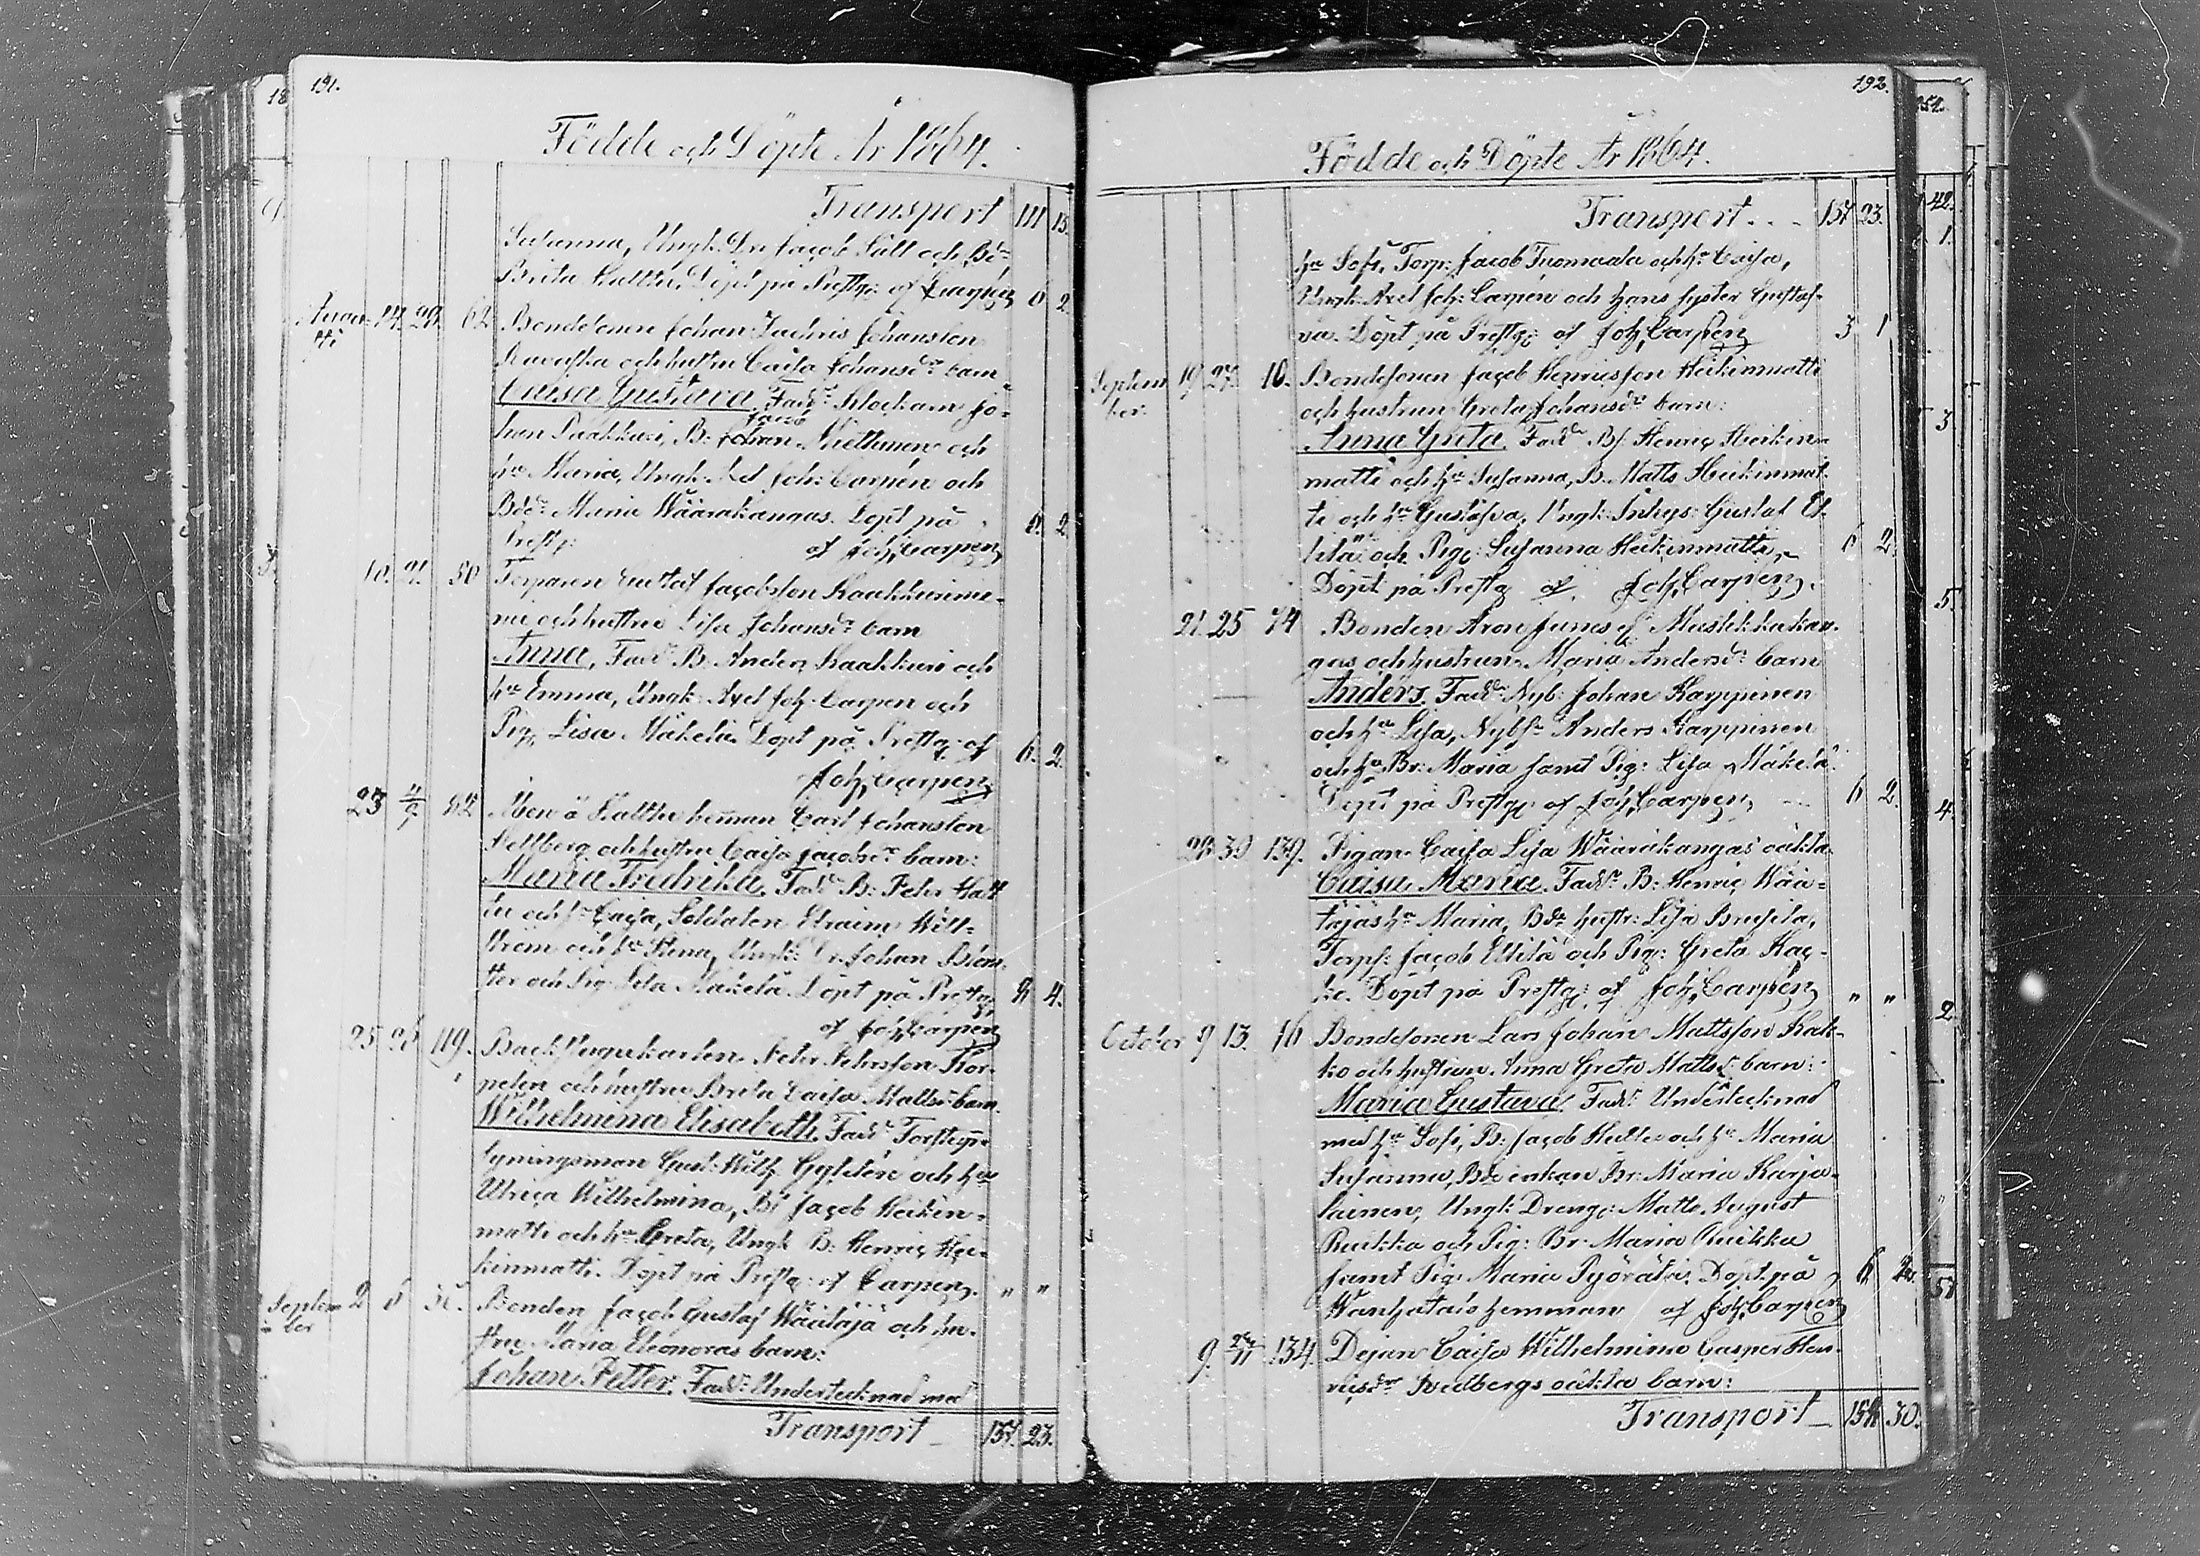 191.
Födde och Döpte År 1864.
Transport 111 15.
Susanna, Ungk: Dr: Jacob Sült och Bd:
Brita Hultti, Döpt på Prestg: af Carpén 6 2
Augusti 14. 29. 62 Bondesonen Johan Zachris Johansson
och hustru Caisa Johansd:r barn
Caisa Gustava. Fadd:r Klockaren Jo-
han Paakkari, B: Jacob Miettunen och
h:u Maria, Ungk: Axel Joh: Carpén och
Bdd:r Maria Wäärakangas. Döpt på 6. 2
Prestg: af Joh, Carpén
10. 21. 50 Torparen Gustaf Jacobsson Kaakkurinie-
mi och hustru Lisa Johansd:r barn
Anna, Fadd:r B: Anders Kaakkuri och
h:u Emma, Ungk: Axel Joh: Carpen och
Pig, Lisa Mäkelä. Döpt på Prestg: af 6. 2.
Joh, Carpén
23 4/9 82 Carl Johansson
Hellberg och hustru Caisa Jacobsd:r barn:
Maria Fredrika. Fadd:r B: Pehr Hult
tu och h:u Caisa, Soldaten Efraim Will-
ström och h:u Stina, Ungk: Dr. Johan Blom-
ster och Pig: Lisa Mäkelä. Döpt på Prestg, 4.
af Joh, Carpen
25 28 119. Backstugukarlen Pehr Pehrsson Kor-
pelin och hustru Brita Caisa Mattsd:r barn.
Wilhelmina Elisabeth. Fadd:r
Gust: Wilh. Gyldén och h:u
Ulrica Wilhelmina, Bs Jacob Heikin-
matti och h:u Greta, Ungk B: Henric Hei-
kinmatti. Döpt på Prestg: af Carpen. " "
September 2 6 Bonden Jacob Gustaf Wäätäjä och hu-
stru Maria Eleonoras barn:
Johan Petter. Fadd:r Undertecknad med
Transport 137. 23.
192.
Födde och Döpte År 1864.
Transport. . . 137 23.
h:u Sofi, Torp: Jacob Tuomaala och h:u Caisa,
Ungk: Axel Joh: Carpén och hans syster Gustaf-
va. Döpt på Prestg: af Joh, Carpén 3 1
September 19. 27. 10. Bondesonen Jacob Henricsson Heikinmatti
och hustrun Greta Johansd:r barn:
Anna Greta. Fadd:r Bs. Henric Heikin-
matti och h:u Susanna, B. Matts Heikinmat-
ti och h:u Gustafva, Ungk: Inhys: Gustaf El-
lilä och Pig: Susanna Heikinmatti, 6 2.
Döpt på Prestg af Joh, Carpen.
21. 25 74 Bonden Aron Junes af Mustikkakan-
gas och hustrun Maria Andersd:r barn
Anders. Fadd:r Nyb: Johan Karppinen
och h:u Lisa, Nybs:n Anders Karppinen
och h:u Br: Maria samt Pig: Lisa Mäkelä.
Döpt på Prestg: af Joh, Carpen, 6 2.
28 30 139. Pigan Caisa Lisa Wäärakangas' oäkta
Caisa Maria. Fadd:r B: Henric Wää-
täjäs h:u Maria, Bds hustr: Lisa
Torps: Jacob Ellilä och Pig: Greta Kac-
ko. Döpt på Prestg: af Joh, Carpén " "
October 9 13. 16 Bondesonen Lars Johan Mattsson Kak-
ko och hustrun Anna Greta Mattsd:r barn:
Maria Gustava. Fadd:r Undertecknad
med h:u Sofi, B: Jacob och h:u Maria
Susanna, Bde enkan Br: Maria Karja-
lainen, Ungk: Dreng: Matts August
Ruikka och Pig: Br: Maria Ruikka
samt Pig: Maria Pyörälä. Döpt på
Wanhatalo hemman af Joh, Carpen
9. 134. Dejan Caisa Wilhelmina Casper Hen-
ricsd:r Hedbergs oäkta barn:
Transport 30.